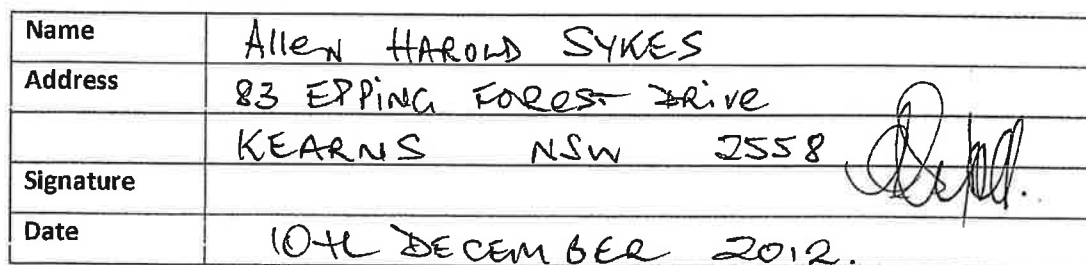 Name Allen HAROLD SYKES
Address 83 EPPING FOREST DRive
KEARNS NSW 2558
Signature
Date 10th DECEMBER 2012.